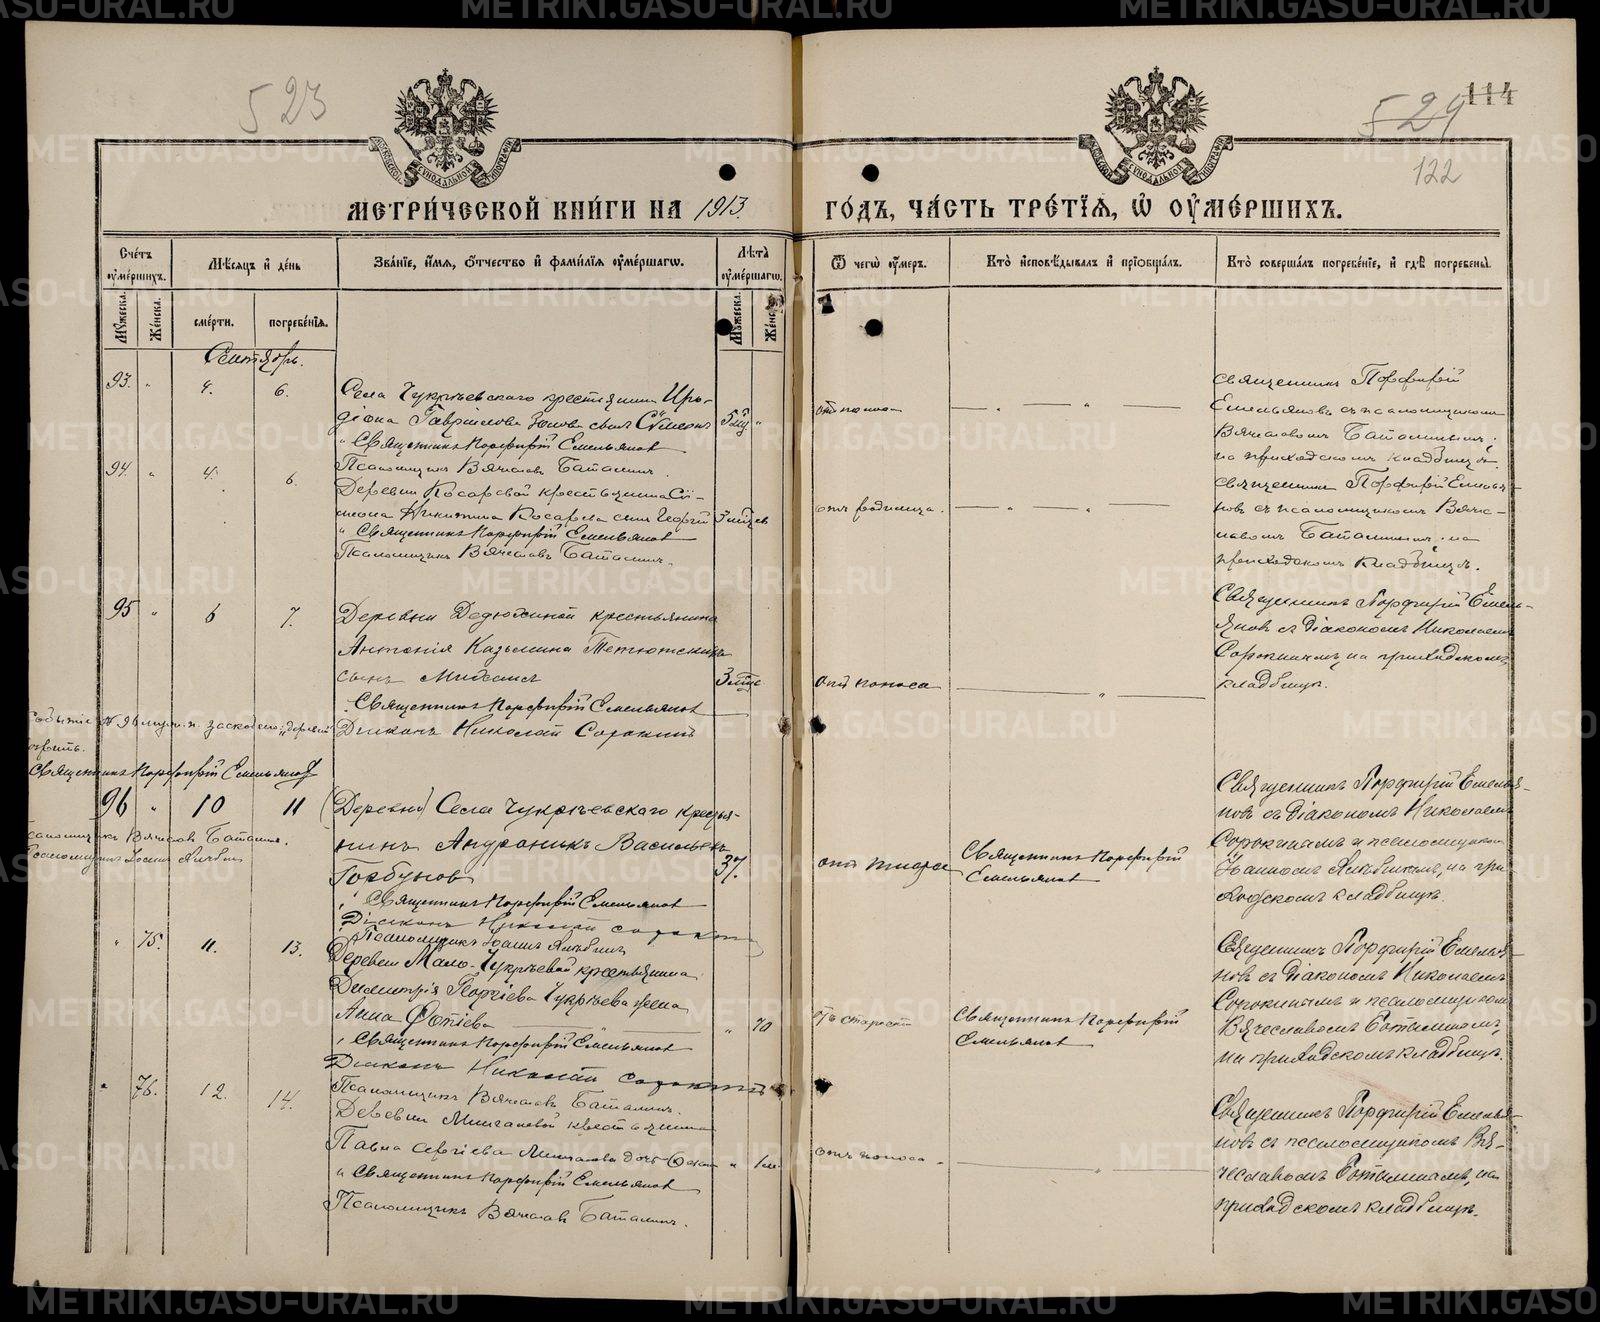 523
524
114
122
МЕТРИ́ЧЕСКОЙ КНИ́ГИ НА 1913.
ГО́ДЪ, ЧА́СТЬ ТРЕ́ТІѦ, Ѡ҆ ОУ҆МЕ́РШИХЪ.
Сче́тъ оу҆ме́ршихъ.
Мѣ́сѧцъ и҆ де́нь
Зва́нїе, и҆́мѧ, ѻ҆́тчество и҆ фами́лїѧ оу҆ме́ршагѡ.
Лѣ́та оу҆ме́ршагѡ.
Ѿ чегѡ̀ оу҆́меръ.
Кто̀ и҆сповѣ́дывалъ и҆ прїѡбща́лъ.
Кто̀ соверша́лъ погребе́нїе, и҆ гдѣ̀ погребены̀.
Мꙋ́жеска.
Же́нска.
сме́рти.
погребе́нїѧ.
Мꙋ́жеска.
Же́нска.
Сентябрь.
93. " 4. 6.
Села Чукрѣевскаго крестьянина Иро-
діона Гавріилова сынъ Сѵмеонъ
" Священникъ Порфирій Емельяновъ
Псаломщикъ Вячеславъ Баталинъ.
5 мц "
отъ поноса
Священникъ Порфирій
Емельяновъ съ псаломщикомъ
Вячеславомъ Баталинымъ.
на приходскомъ кладбищѣ.
94. " 4. 6.
Деревни Косаревой крестьянина Си-
меона Никитина Косарева сынъ Георгій
" Священникъ Порфирій Емельяновъ
Псаломщикъ Вячеславъ Баталинъ.
3 мѣсяцевъ
отъ родимца.
священникъ Порфирій Емелья-
новъ съ псаломщикомъ Вяче-
славомъ Баталинымъ. на
приходскомъ кладбищѣ.
95 " 6 7.
Деревни Дедюхиной крестьянина
Антонія Казьмина Тетютскихъ
сынъ Михаилъ
Священникъ Порфирій Емельяновъ
Діаконъ Николай Сорокинъ
3 мѣс.
отъ поноса
Священникъ Порфирій Емель-
яновъ съ діакономъ Николаемъ
Сорокинымъ, на приходскомъ
кладбищѣ.
Священникъ Порфирій Емельяновъ
Псаломщикъ Вячеславъ Баталинъ.
96 " 10 11
(Деревни) Села Чукрѣевскаго крестья-
нинъ Андроникъ Васильевъ
Горбуновъ
" Священникъ Порфирій Емельяновъ
Діаконъ Николай Сорокинъ
Псаломщикъ Іоаннъ
37.
отъ тифа
Священникъ Порфирій
Емельяновъ
Священникъ Порфирій Емелья-
новъ съ діакономъ Николаемъ
Сорокинымъ и псаломщикомъ
на при-
ходскомъ кладбищѣ.
" 75. 11. 13.
Деревни Мало-Чукрѣевой крестьянина
Димитрія Георгіева Чукрѣева жена
Анна Фотіева
" Священникъ Порфирій Емельяновъ
Діаконъ Николай Сорокинъ
Псаломщикъ Вячеславъ Баталинъ.
" 70
отъ старости
Священникъ Порфирій
Емельяновъ
Священникъ Порфирій Емелья-
новъ съ діакономъ Николаемъ
Сорокинымъ и псаломщикомъ
Вячеславомъ Баталинымъ,
на приходскомъ кладбищѣ.
" 76. 12. 14.
Деревни Мингалевой крестьянина
Павла Сергіева Мингалева дочь
" Священникъ Порфирій Емельяновъ
Псаломщикъ Вячеславъ Баталинъ.
отъ поноса
Священникъ Порфирій Емелья-
новъ съ псаломщикомъ Вя-
чеславомъ Баталинымъ, на
приходскомъ кладбищѣ.
METRIKI.GASO-URAL.RU